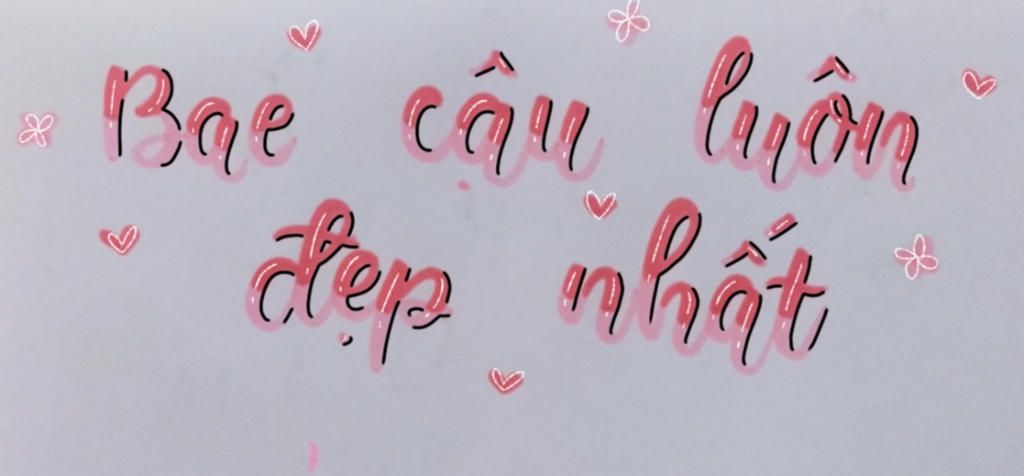 Bae cậu luôn
đẹp nhất